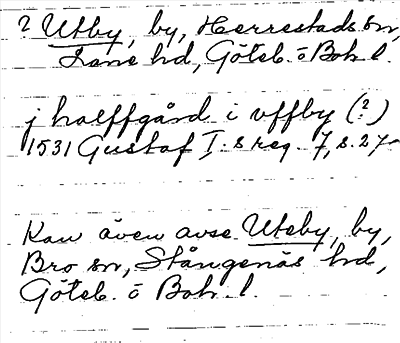 ? Utby, by, Herrestads sn,
Lane hd, Göteb. o Boh. l.
j halffgård i vffby (?)
1531 Gustaf I:s reg. 7, s. 27
Kan även avse Utby, by,
Bro sn, Stångenäs hd,
Göteb. o Boh. l.